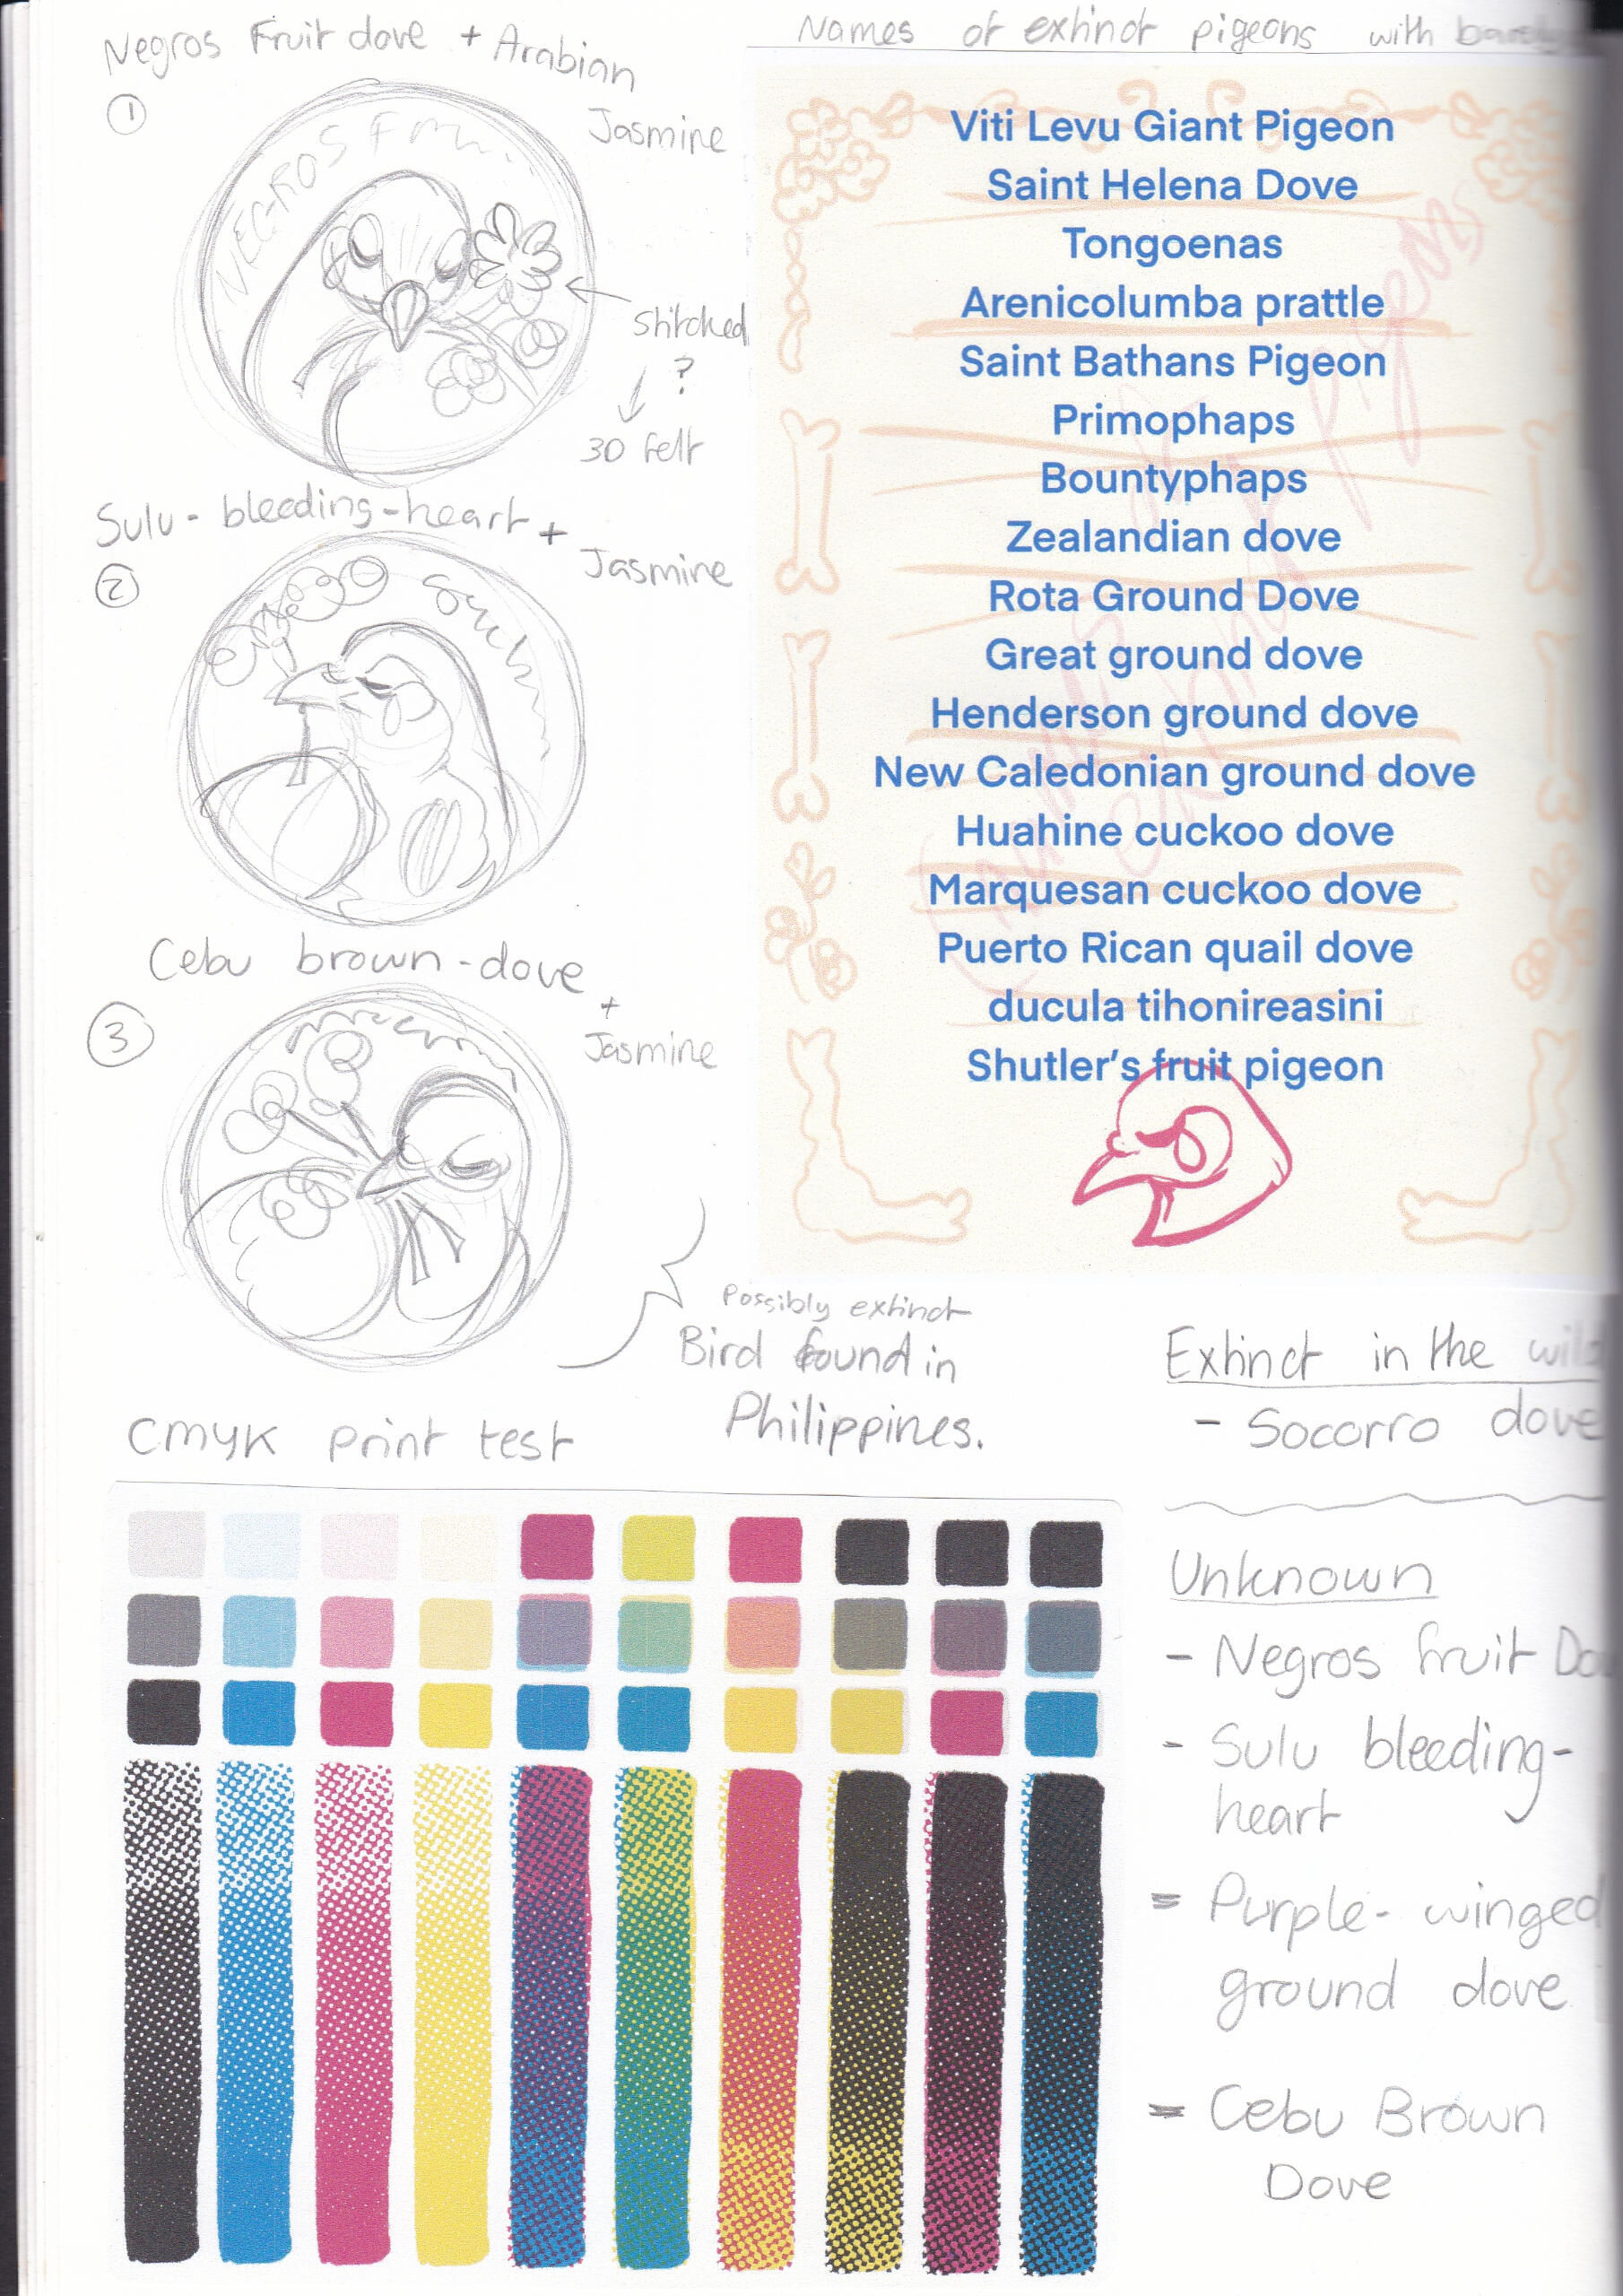 Negros Fruit dove + Arabian
Jasmine
1
NEGROS Fru
stitched
?
3D felt
Sulu-bleeding-heart +
Jasmine
2
Cebu brown-dove
+
Jasmine
3
Possibly extinct
Bird found in
Philippines.
Names of extinct pigeons with
Viti Levu Giant Pigeon
Saint Helena Dove
Tongoenas
Arenicolumba prattle
Saint Bathans Pigeon
Primophaps
Bountyphaps
Zealandian dove
Rota Ground Dove
Great ground dove
Henderson ground dove
New Caledonian ground dove
Huahine cuckoo dove
Marquesan cuckoo dove
Puerto Rican quail dove
ducula tihonireasini
Shutler's fruit pigeon
CMYK print test
Extinct in the wild
- Socorro dove
Unknown
- Negros fruit Do
- Sulu bleeding-
heart
= Purple-winged
ground dove
= Cebu Brown
Dove